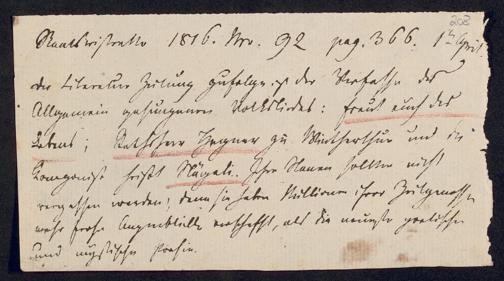 203
Staatsristretto 1816. Nro. 92 pag. 366. 1ten April.
der Literatur Zeitung zufolge ist der Verfasser des
Allgemein gesungenen Volksliedes: Freut euch des
Lebens; Rathsherr Hegner zu Winterthur und der
Componist heißt Nägeli. Ihre Namen sollten nicht
vergessen werden; denn sie haben Millionen ihrer Zeitgenossen
mehr frohe Augenblicke verschafft, als die neueste poetische
und mystische Poesie.